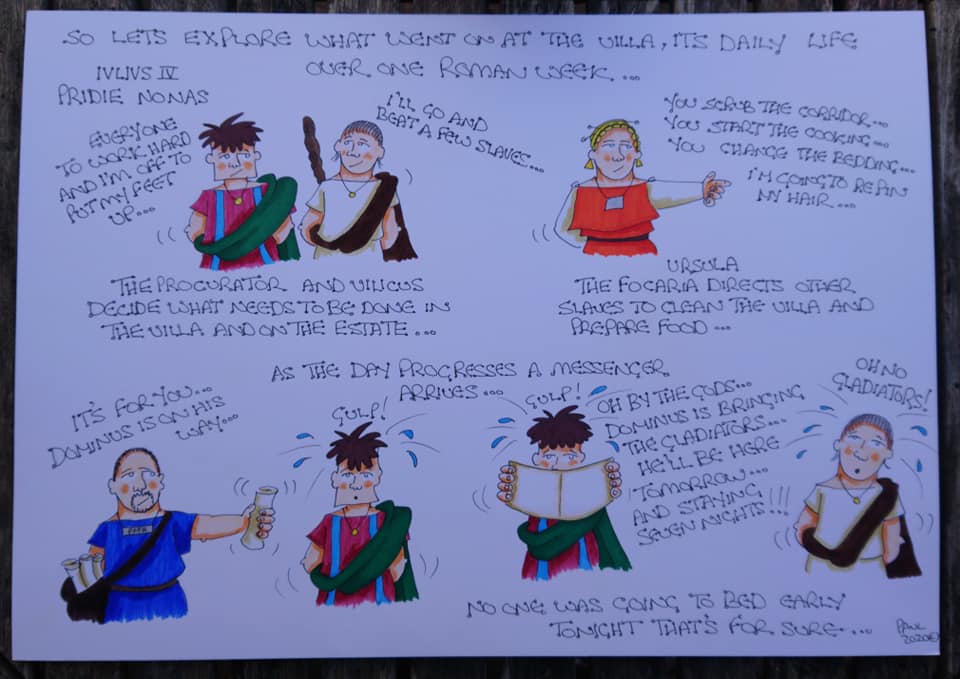 SO LETS EXPLORE WHAT WENT ON AT THE VILLA, ITS DAILY LIFE
OVER ONE ROMAN WEEK...
IVLIVS IV
PRIDIE NONAS
EVERYONE
TO WORK HARD
AND I'M OFF TO
PUT MY FEET
UP...
I'LL GO AND
BEAT A FEW SLAVES...
YOU SCRUB THE CORRIDOR...
YOU START THE COOKING...
YOU CHANGE THE BEDDING...
I'M GOING TO RE PIN
MY HAIR...
THE PROCURATOR AND VILICUS
DECIDE WHAT NEEDS TO BE DONE IN
THE VILLA AND ON THE ESTATE...
URSULA
THE FOCARIA DIRECTS OTHER
SLAVES TO CLEAN THE VILLA AND
PREPARE FOOD...
AS THE DAY PROGRESSES A MESSENGER
ARRIVES...
IT'S FOR YOU...
DOMINUS IS ON HIS
WAY...
GULP!
GULP!
OH BY THE GODS...
DOMINUS IS BRINGING
THE GLADIATORS...
HE'LL BE HERE
TOMORROW...
AND STAYING
SEVEN NIGHTS!!!
OH NO
GLADIATORS!
NO ONE WAS GOING TO BED EARLY
TONIGHT THAT'S FOR SURE...
PAUL
2020©